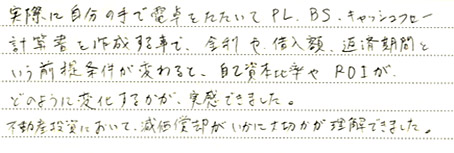 実際に自分の手で電卓をたたいてPL、BS、キャッシュフロー
計算書を作成する事で、金利や、借入額、返済期間と
いう前提条件が変わると、自己資本比率やROIが、
どのように変化するかが、実感できました。
不動産投資において、減価償却がいかに大切かが理解できました。